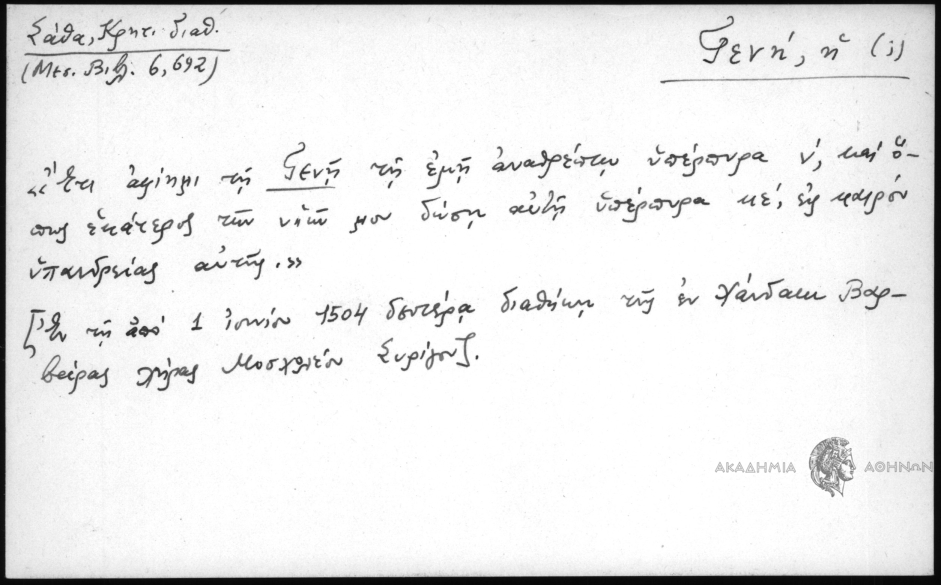 Σάθα, Κρητ. διαθ.
(Μεσ. Βιβλ. 6, 692)
Γενή, ἡ (;)
«Ἔτι ἀφίημι τῇ Γενῇ τῇ ἐμῇ ἀναθρέπτῃ ὑπέρπυρα ν', καί ὅ-
πως ἑκάτερος τῶν υἱῶν μου δώσῃ αὐτῇ ὑπέρπυρα κε', εἰς καιρόν
ὑπανδρείας αὐτῆς.»
[Ἐν τῇ ἀπό 1 ἰουνίου 1504 δευτέρᾳ διαθήκῃ τῆς ἐν Χάνδακι Βαρ-
βάρας χήρας Μοσχολέου Συρίγου].
ΑΚΑΔΗΜΙΑ ΑΘΗΝΩΝ